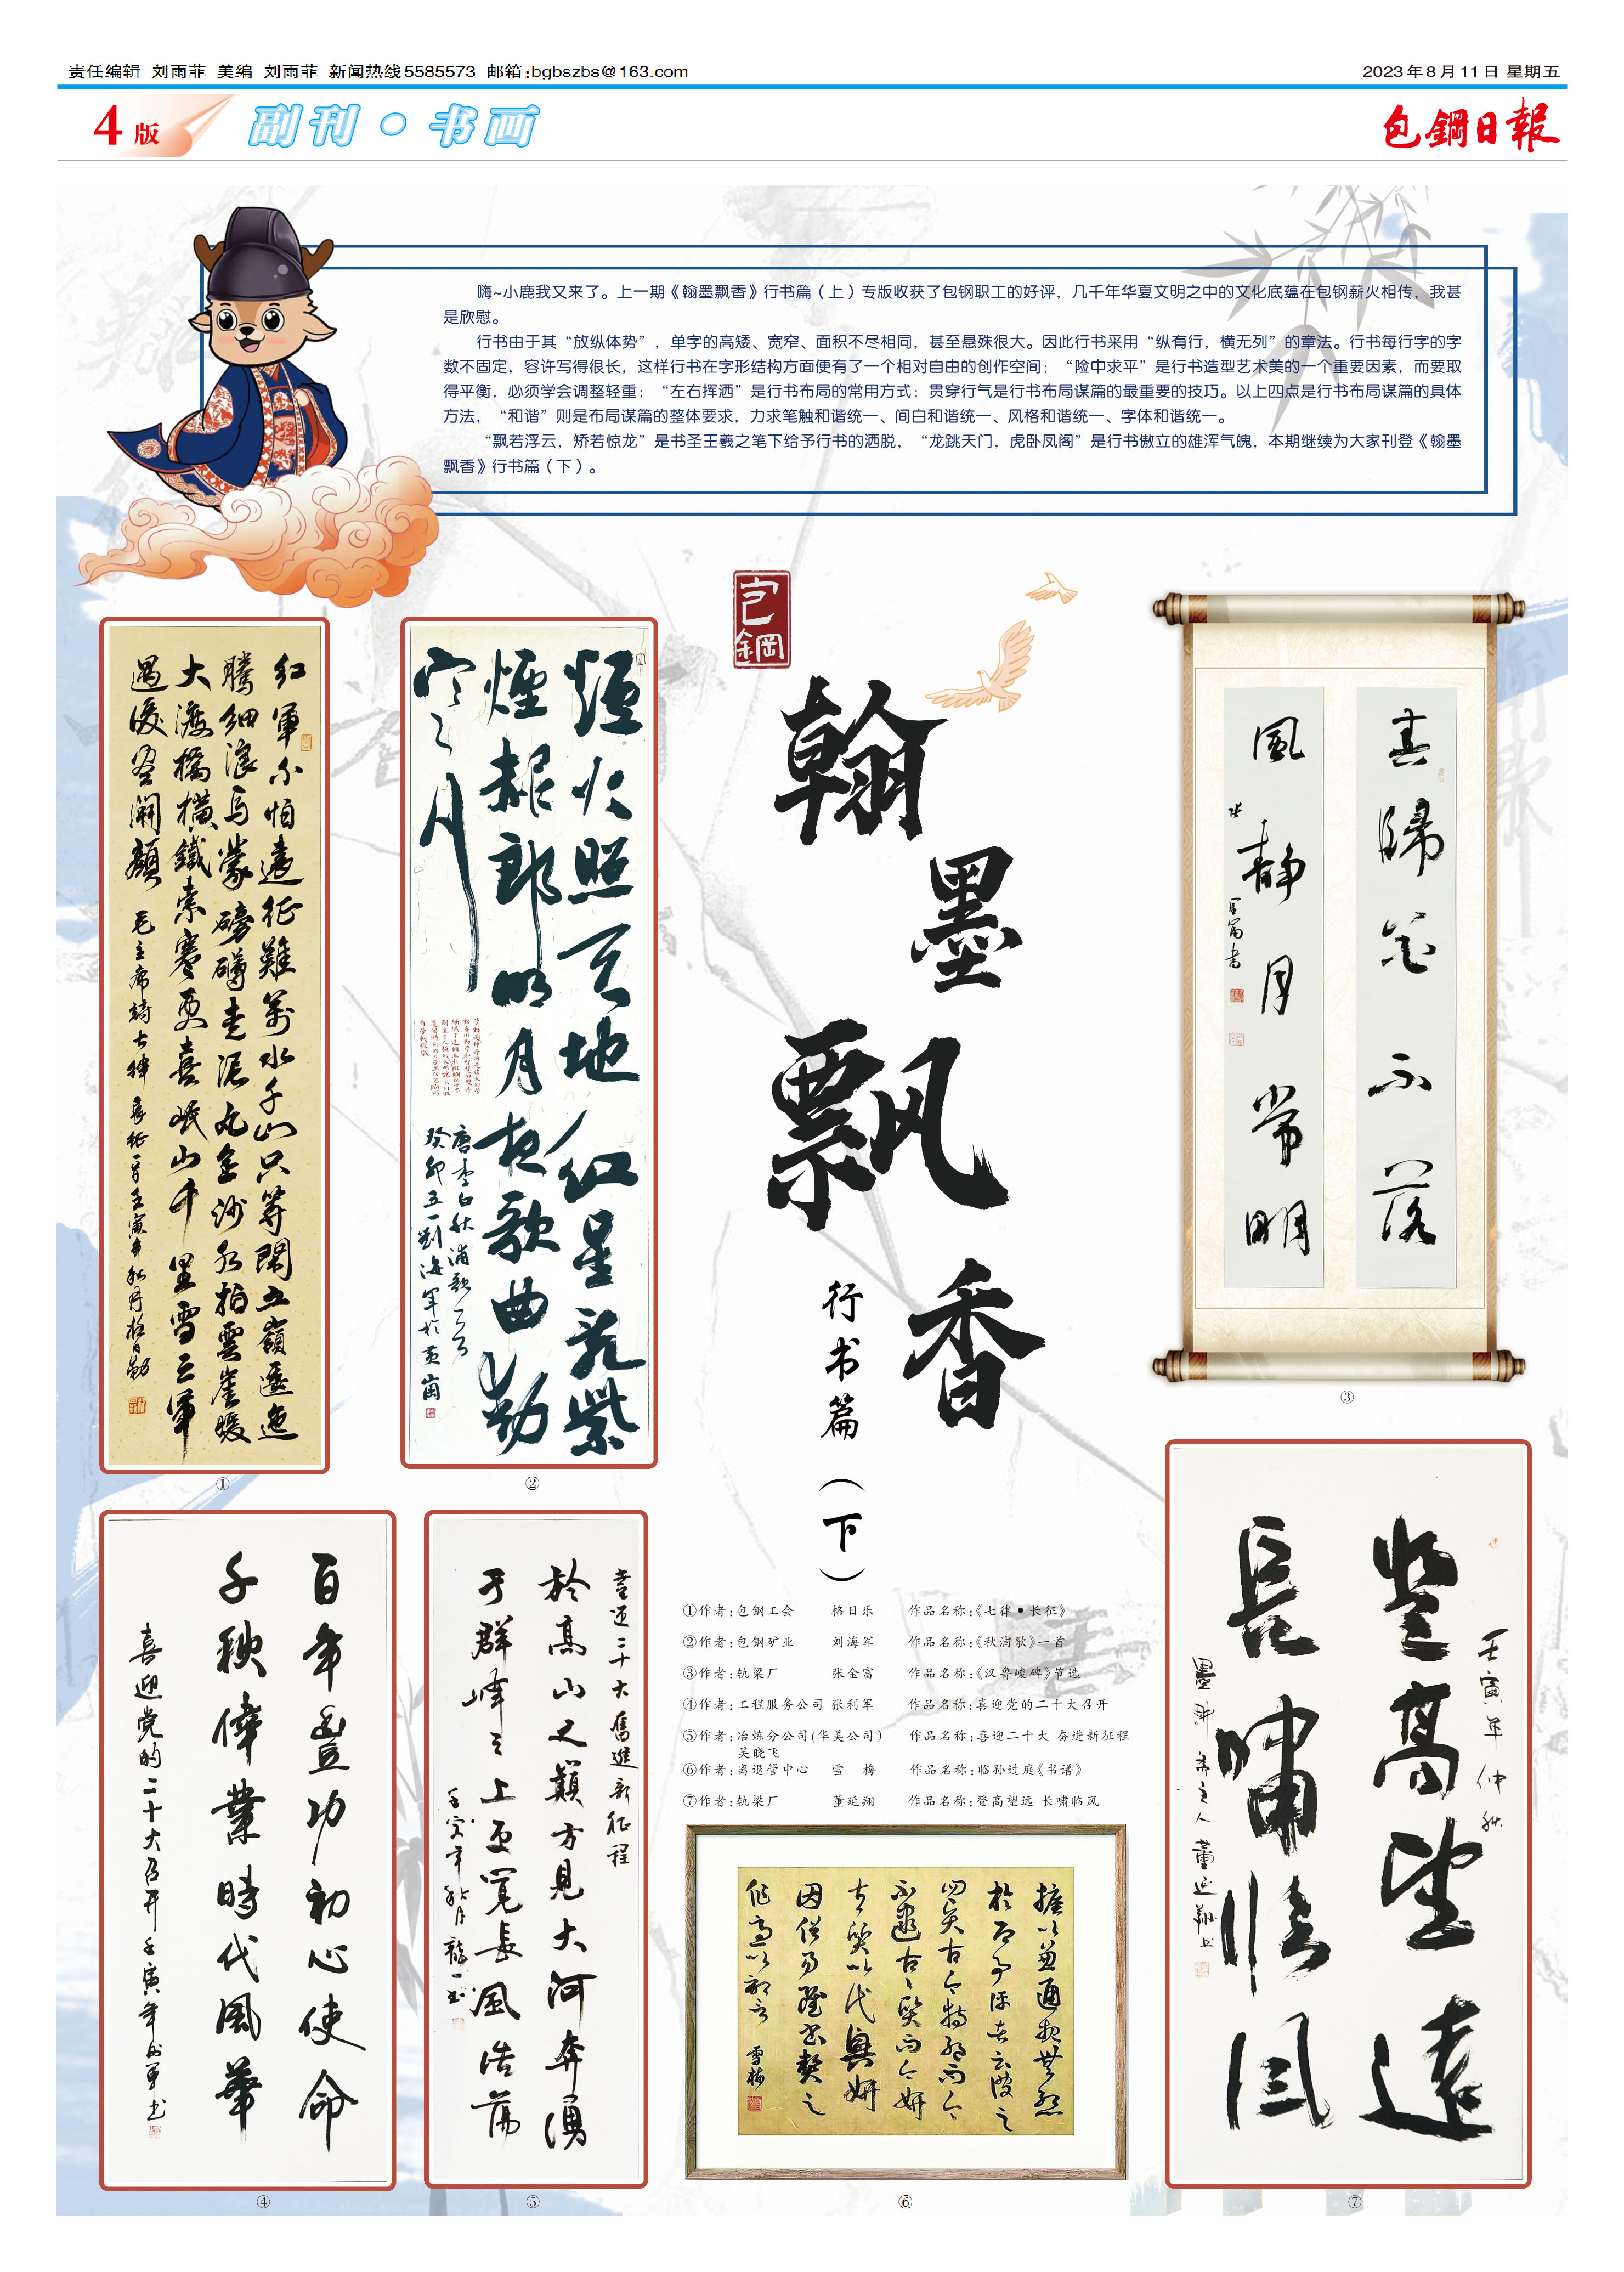 责任编辑 刘雨菲 美编 刘雨菲 新闻热线5585573 邮箱:bgbszbs@163.com
2023年8月11日 星期五
4版
副刊·书画
包鋼日報
嗨~小鹿我又来了。上一期《翰墨飘香》行书篇（上）专版收获了包钢职工的好评，几千年华夏文明之中的文化底蕴在包钢薪火相传，我甚
是欣慰。
行书由于其“放纵体势”，单字的高矮、宽窄、面积不尽相同，甚至悬殊很大。因此行书采用“纵有行，横无列”的章法。行书每行字的字
数不固定，容许写得很长，这样行书在字形结构方面便有了一个相对自由的创作空间；“险中求平”是行书造型艺术美的一个重要因素，而要取
得平衡，必须学会调整轻重；“左右挥洒”是行书布局的常用方式；贯穿行气是行书布局谋篇的最重要的技巧。以上四点是行书布局谋篇的具体
方法，“和谐”则是布局谋篇的整体要求，力求笔触和谐统一、间白和谐统一、风格和谐统一、字体和谐统一。
“飘若浮云，矫若惊龙”是书圣王羲之笔下给予行书的洒脱，“龙跳天门，虎卧凤阁”是行书傲立的雄浑气魄，本期继续为大家刊登《翰墨
飘香》行书篇（下）。
包鋼
翰墨飘香
行书篇（下）
紅軍不怕遠征難萬水千山只等閑五嶺逶迤
騰細浪烏蒙磅礴走泥丸金沙水拍雲崖暖
大渡橋橫鐵索寒更喜岷山千里雪三軍
過後盡開顏
毛主席詩七律 長征一首壬寅年秋月格日勒
①
爐火照天地紅星亂紫
煙赧郎明月夜歌曲動
寒川
唐李白秋浦歌一首
癸卯五一劉海軍於黃崗
②
春歸花不落
風靜月常明
张金富書
③
百年豐功初心使命
千秋偉業時代風華
喜迎党的二十大召开 壬寅年利军书
④
喜迎二十大奮進新征程
於高山之巔方見大河奔湧
于群峰之上更覺長風浩蕩
壬寅年秋月
⑤
①作者:包钢工会 格日乐 作品名称:《七律•长征》
②作者:包钢矿业 刘海军 作品名称:《秋浦歌》一首
③作者:轨梁厂 张金富 作品名称:《汉鲁峻碑》节选
④作者:工程服务公司 张利军 作品名称:喜迎党的二十大召开
⑤作者:冶炼分公司(华美公司) 吴晓飞 作品名称:喜迎二十大 奋进新征程
⑥作者:离退管中心 雪 梅 作品名称:临孙过庭《书谱》
⑦作者:轨梁厂 董延翔 作品名称:登高望远 长啸临风
擅以兼通故無慙
於即事評者云彼之
四賢古今特絕而今
不逮古古質而今妍
夫質以代興妍
因俗易雖書契之
作適以記言
雪梅
⑥
壬寅年仲秋
登高望遠
長嘯臨風
墨耕齋主人董延翔书
⑦